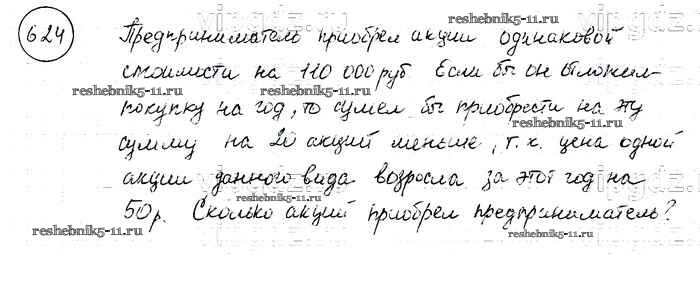 624
Предприниматель приобрел акции одинаковой
стоимости на 110 000 руб Если бы он отложил
покупку на год, то сумел бы приобрести на эту
сумму на 20 акций меньше, т.к. цена одной
акции данного вида возросла за этот год на
50р. Сколько акций приобрел предприниматель?
reshebnik5-11.ru
reshebnik5-11.ru
reshebnik5-11.ru
reshebnik5-11.ru
reshebnik5-11.ru
reshebnik5-11.ru
reshebnik5-11.ru
reshebnik5-11.ru